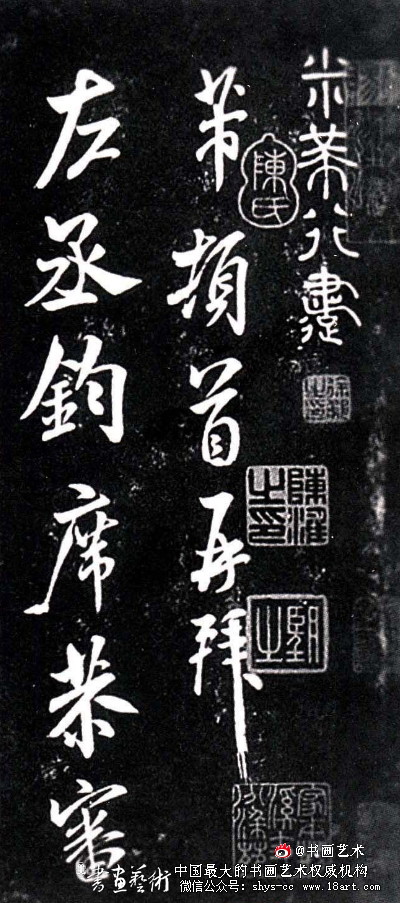 米芾行書
陳氏
芾頓首再拜
左丞鈞席恭審
@书画艺术
書畫藝術
中国最大的书画艺术权威机构
微信公众号: shys-cc www.18art.com